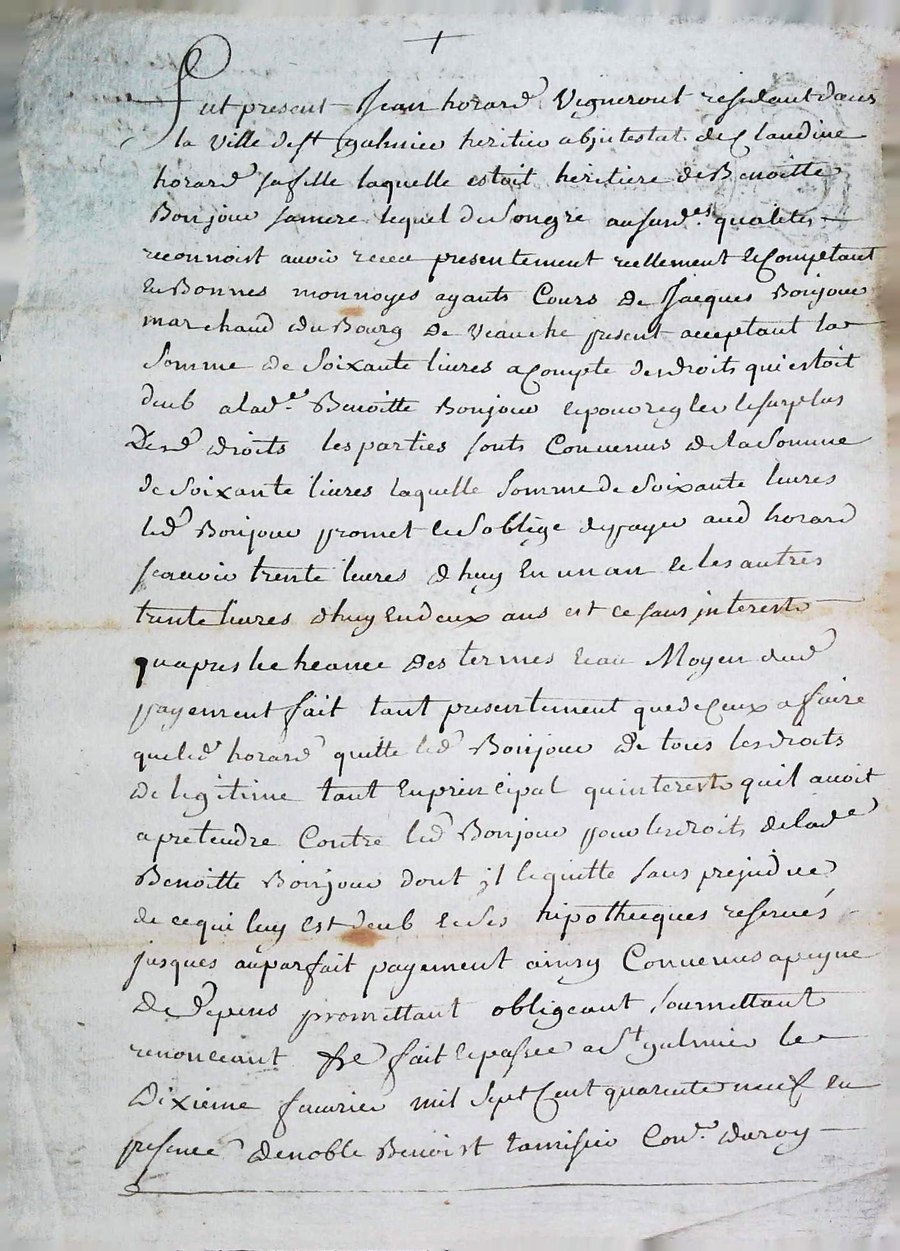 +
Fut present Jean horard Vigneront residant dans
la Ville de st galmier heritier abjntestat de Claudine
horard sa fille laquelle estoit heritiere de Benoitte
Bonjour samere lequel de songre aususd.es qualites
reconnoist avoir receu presentement reellement et Comptant
en Bonnes monnoyes ayants Cours de Jacques Bonjour
marchand du Bourg de veauche present acceptant la
somme de soixante livres a Compte des droits qui estoit
deub a lad.e Benoitte Bonjour et pour regler le surplus
Desd droits les parties sonts Convenus de la somme
de soixante livres laquelle somme de soixante livres
led Bonjour promet et soblige de payer aud horard
scavoir trente livres dhuy En un an et les autres
trente livres dhuy En deux ans est ce sans jnterests
quapres lecheance des termes et au Moyen dud
payement fait tant presentement que de Ceux a faire
que led horard quitte led Bonjour de tous les droits
de legitime tant En principal quinterests quil avoit
a pretendre Contre led Bonjour pour les droits de lade
Benoitte Bonjour dont jl le quitte sans prejudice
de ce qui luy est deub et des hipotheques reservés
jusques au parfait payement ainsy Convenus a peyne
de depens promettant obligeant soumettant
renonceant fait et passé a St galmier le
Dixieme fevrier mil sept Cent quarente neuf en
presence de noble Benoist tamisier Con.r du roy